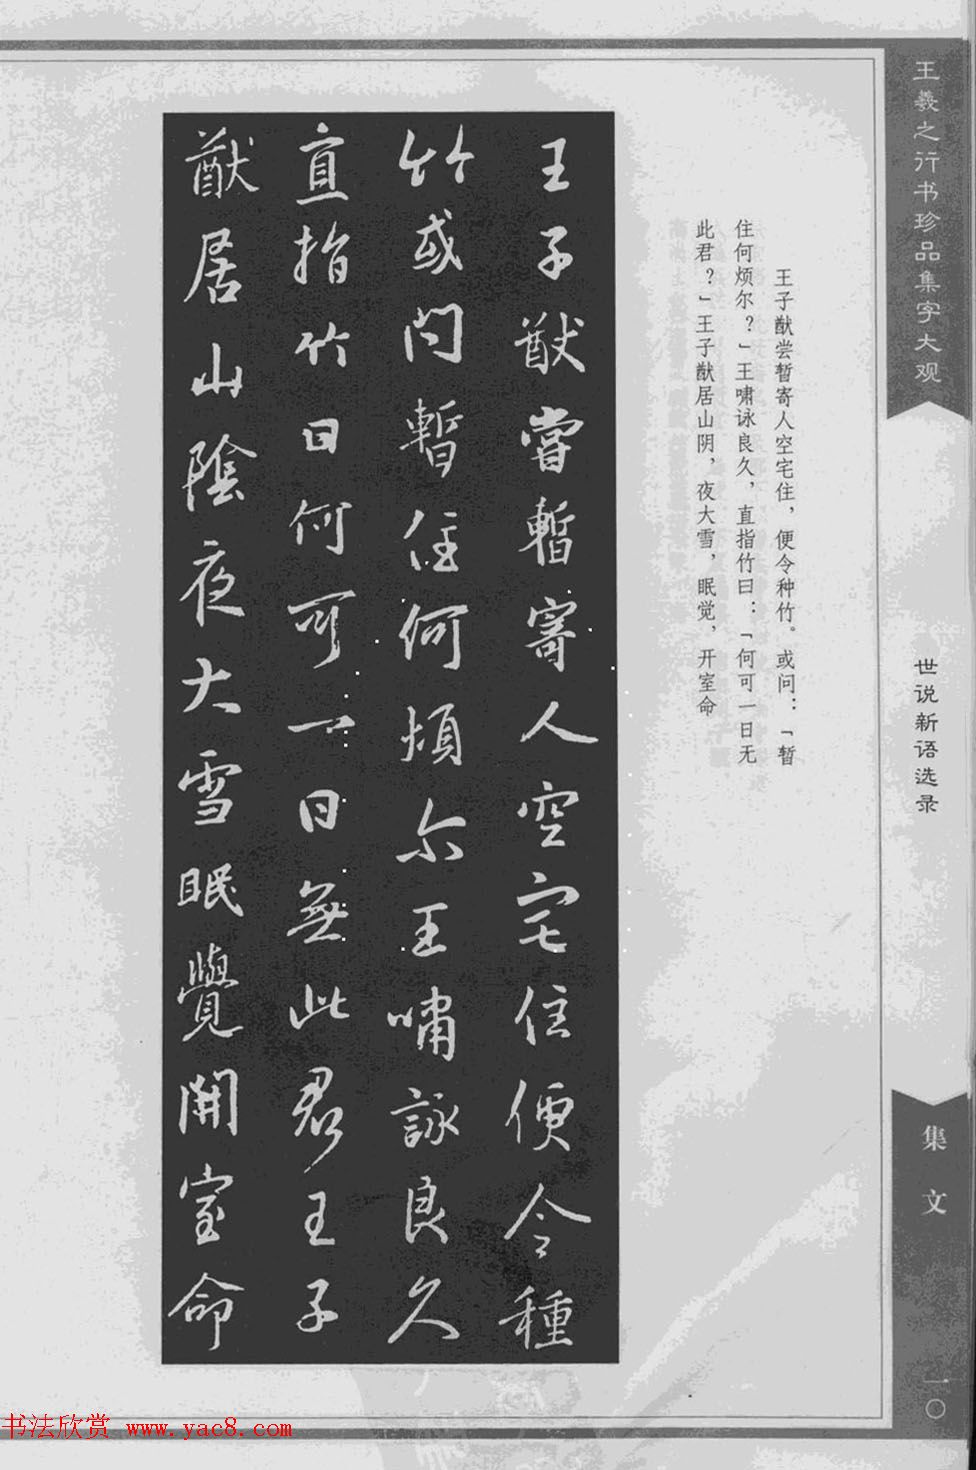 王羲之行书珍品集字大观
世说新语选录
集文
一〇
王子猷尝暂寄人空宅住，便令种竹。或问：「暂
住何烦尔？」王啸咏良久，直指竹曰：「何可一日无
此君？」王子猷居山阴，夜大雪，眠觉，开室命
王子猷嘗暫寄人空宅住便令種
竹或问暫住何煩尔王嘯詠良久
直指竹曰何可一日無此君王子
猷居山陰夜大雪眠覺開室命
书法欣赏 www.yac8.com